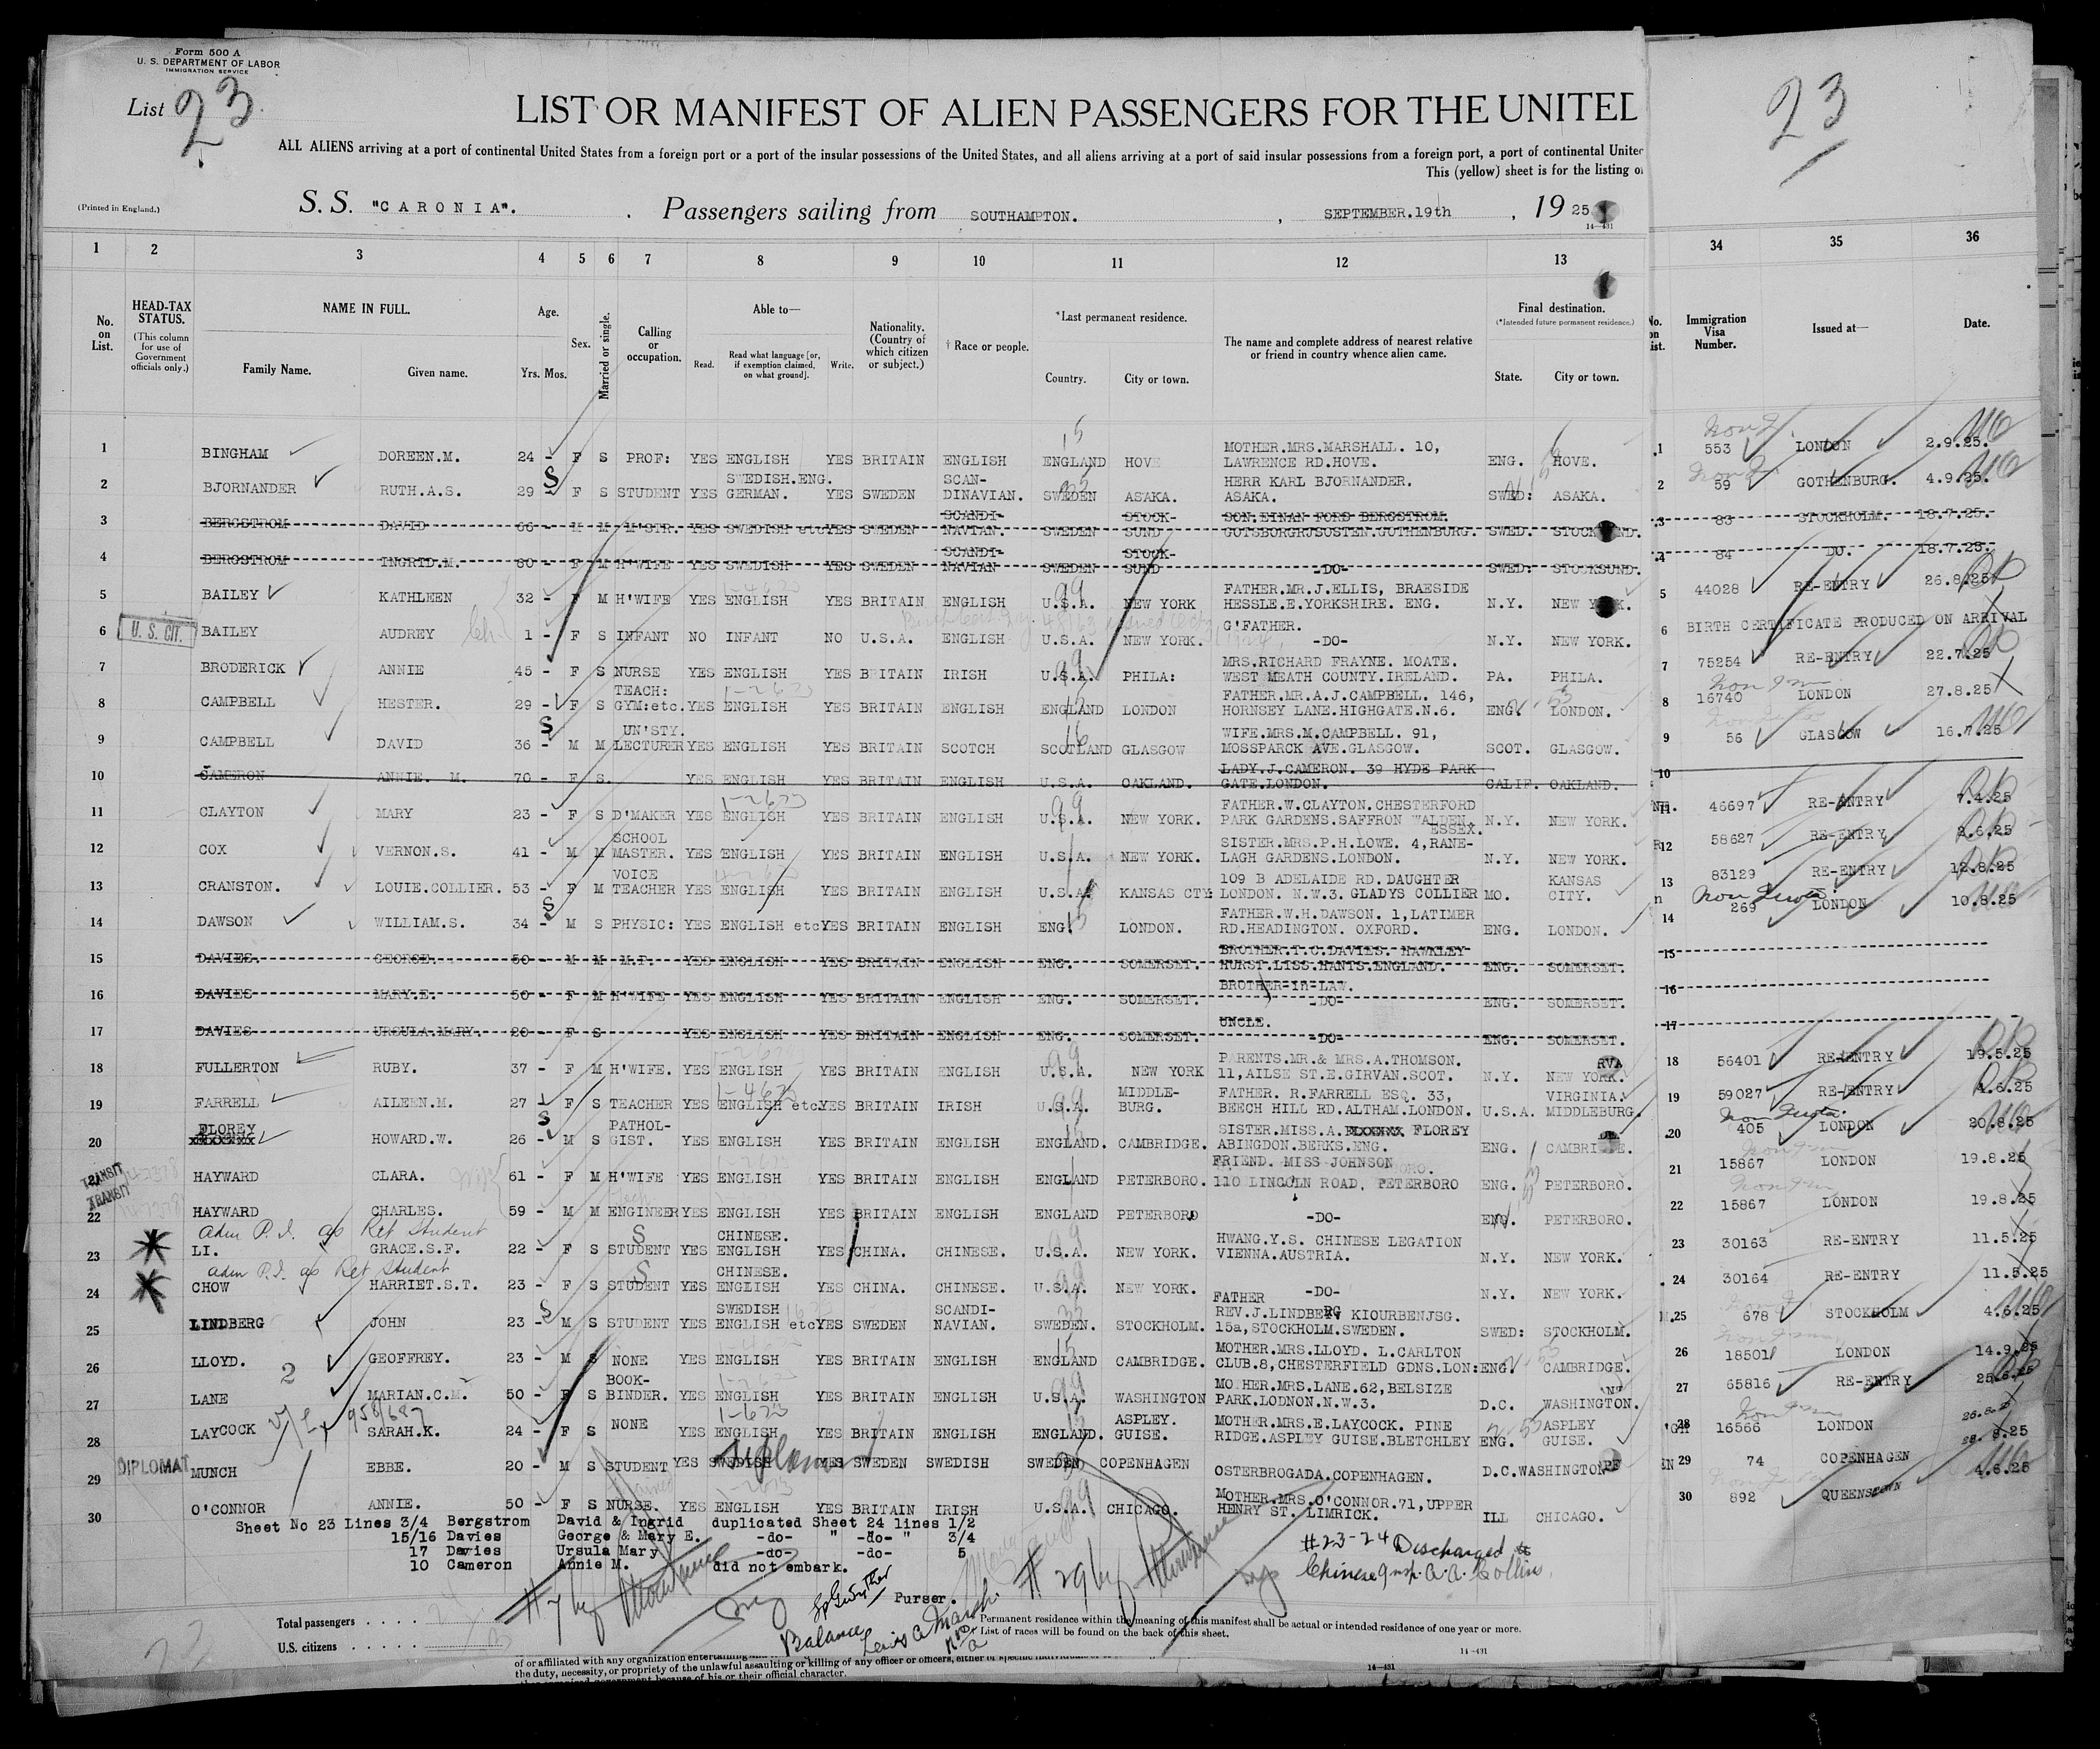 Form 500 A
U. S. DEPARTMENT OF LABOR
IMMIGRATION SERVICE
List 23
23
LIST OR MANIFEST OF ALIEN PASSENGERS FOR THE UNITED
ALL ALIENS arriving at a port of continental United States from a foreign port or a port of the insular possessions of the United States, and all aliens arriving at a port of said insular possessions from a foreign port, a port of continental United
This (yellow) sheet is for the listing of
(Printed in England.)
S. S. "CARONIA". Passengers sailing from SOUTHAMPTON. , SEPTEMBER.19th , 19 25
14—431
1 2 3 4 5 6 7 8 9 10 11 12 13 34 35 36
No. on List. HEAD-TAX STATUS. (This column for use of Government officials only.) NAME IN FULL. Family Name. Given name. Age. Yrs. Mos. Sex. Married or single. Calling or occupation. Able to— Read. Read what language [or, if exemption claimed, on what ground]. Write. Nationality. (Country of which citizen or subject.) † Race or people. *Last permanent residence. Country. City or town. The name and complete address of nearest relative or friend in country whence alien came. Final destination. (*Intended future permanent residence.) State. City or town. Immigration Visa Number. Issued at— Date.
1 BINGHAM DOREEN.M. 24 - F S PROF: YES ENGLISH YES BRITAIN ENGLISH ENGLAND HOVE MOTHER.MRS.MARSHALL. 10, LAWRENCE RD.HOVE. ENG. HOVE. 1 553 LONDON 2.9.25.
2 BJORNANDER RUTH.A.S. 29 - F S STUDENT YES SWEDISH.ENG. GERMAN. YES SWEDEN SCAN-DINAVIAN. SWEDEN ASAKA. HERR KARL BJORNANDER. ASAKA. SWED: ASAKA. 2 59 GOTHENBURG. 4.9.25.
3 BERGSTROM DAVID 66 - M M M'STR. YES SWEDISH etc YES SWEDEN SCANDI-NAVIAN. SWEDEN STOCK-SUND SON.EINAN FORD BERGSTROM. GOTSBORGRJSOSTEN.GOTHENBURG. SWED. STOCKSUND. 3 83 STOCKHOLM. 18.7.25.
4 BERGSTROM INGRID.M. 60 - F M H'WIFE YES SWEDISH YES SWEDEN SCANDI-NAVIAN SWEDEN STOCK-SUND -DO- SWED: STOCKSUND. 4 84 DO. 18.7.25.
5 BAILEY KATHLEEN 32 - F M H'WIFE YES ENGLISH YES BRITAIN ENGLISH U.S.A. NEW YORK FATHER.MR.J.ELLIS, BRAESIDE HESSLE.E.YORKSHIRE. ENG. N.Y. NEW YORK. 5 44028 RE-ENTRY 26.8.25
6 U. S. CIT. BAILEY AUDREY 1 - F S INFANT NO INFANT NO U.S.A. ENGLISH U.S.A. NEW YORK. G'FATHER. -DO- N.Y. NEW YORK. 6 BIRTH CERTIFICATE PRODUCED ON ARRIVAL
7 BRODERICK ANNIE 45 - F S NURSE YES ENGLISH YES BRITAIN IRISH U.S.A. PHILA: MRS.RICHARD FRAYNE. MOATE. WEST MEATH COUNTY.IRELAND. PA. PHILA. 7 75254 RE-ENTRY 22.7.25
8 CAMPBELL HESTER. 29 - F S TEACH: GYM:etc. YES ENGLISH YES BRITAIN ENGLISH ENGLAND LONDON FATHER.MR.A.J.CAMPBELL. 146, HORNSEY LANE.HIGHGATE.N.6. ENG. LONDON. 8 16740 LONDON 27.8.25
9 CAMPBELL DAVID 36 - M M UN'STY. LECTURER YES ENGLISH YES BRITAIN SCOTCH SCOTLAND GLASGOW WIFE.MRS.M.CAMPBELL. 91, MOSSPARCK AVE.GLASGOW. SCOT. GLASGOW. 9 56 GLASGOW 16.7.25
10 CAMERON ANNIE. M. 70 - F S. YES ENGLISH YES BRITAIN ENGLISH U.S.A. OAKLAND. LADY.J.CAMERON. 39 HYDE PARK GATE.LONDON. CALIF. OAKLAND. 10
11 CLAYTON MARY 23 - F S D'MAKER YES ENGLISH YES BRITAIN ENGLISH U.S.A. NEW YORK. FATHER.W.CLAYTON.CHESTERFORD PARK GARDENS.SAFFRON WALDEN. ESSEX. N.Y. NEW YORK. 11 46697 RE-ENTRY 7.4.25
12 COX VERNON.S. 41 - M M SCHOOL MASTER. YES ENGLISH YES BRITAIN ENGLISH U.S.A. NEW YORK. SISTER.MRS.P.H.LOWE. 4,RANE-LAGH GARDENS.LONDON. N.Y. NEW YORK. 12 58627 RE-ENTRY 2.6.25
13 CRANSTON. LOUIE.COLLIER. 53 - F M VOICE TEACHER YES ENGLISH YES BRITAIN ENGLISH U.S.A. KANSAS CTY: 109 B ADELAIDE RD.DAUGHTER LONDON. N.W.3. GLADYS COLLIER MO. KANSAS CITY. 13 83129 RE-ENTRY 12.8.25
14 DAWSON WILLIAM.S. 34 - M S PHYSIC: YES ENGLISH etc YES BRITAIN ENGLISH ENG. LONDON. FATHER.W.H.DAWSON. 1,LATIMER RD.HEADINGTON. OXFORD. ENG. LONDON. 14 269 LONDON 10.8.25
15 DAVIES. GEORGE. 50 - M M M.P. YES ENGLISH YES BRITAIN ENGLISH ENG. SOMERSET. BROTHER.T.C.DAVIES. HAWKLEY HURST.LISS.HANTS.ENGLAND. ENG. SOMERSET. 15
16 DAVIES MARY.E. 50 - F M H'WIFE YES ENGLISH YES BRITAIN ENGLISH ENG. SOMERSET. BROTHER-in-LAW. -DO- ENG. SOMERSET. 16
17 DAVIES URSULA.MARY. 20 - F S YES ENGLISH YES BRITAIN ENGLISH ENG. SOMERSET. UNCLE. -DO- ENG. SOMERSET. 17
18 FULLERTON RUBY. 37 - F M H'WIFE. YES ENGLISH YES BRITAIN ENGLISH U.S.A. NEW YORK PARENTS.MR.& MRS.A.THOMSON. 11,AILSE ST.E.GIRVAN.SCOT. N.Y. NEW YORK. 18 56401 RE-ENTRY 19.5.25
19 FARRELL AILEEN.M. 27 - F S TEACHER YES ENGLISH etc. YES BRITAIN IRISH U.S.A. MIDDLE-BURG. FATHER. R.FARRELL ESQ. 33, BEECH HILL RD.ALTHAM.LONDON. U.S.A. VIRGINIA. MIDDLEBURG. 19 59027 RE-ENTRY 4.6.25
20 FLOREY HOWARD.W. 26 - M S PATHOL-GIST. YES ENGLISH YES BRITAIN ENGLISH ENGLAND. CAMBRIDGE. SISTER.MISS.A. FLOREY ABINGDON.BERKS.ENG. ENG. CAMBRIDGE. 20 405 LONDON 20.8.25
21 TRANSIT HAYWARD CLARA. 61 - F M H'WIFE YES ENGLISH YES BRITAIN ENGLISH ENGLAND PETERBORO. FRIEND. MISS JOHNSON 110 LINCOLN ROAD, PETERBORO ENG. PETERBORO. 21 15867 LONDON 19.8.25
22 TRANSIT HAYWARD CHARLES. 59 - M M ENGINEER YES ENGLISH YES BRITAIN ENGLISH ENGLAND PETERBORO -DO- ENG. PETERBORO. 22 15867 LONDON 19.8.25
adm P.I. as Ret Student
23 LI. GRACE.S.F. 22 - F S STUDENT YES CHINESE. ENGLISH YES CHINA. CHINESE. U.S.A. NEW YORK. HWANG.Y.S. CHINESE LEGATION VIENNA.AUSTRIA. N.Y. NEW YORK. 23 30163 RE-ENTRY 11.5.25
adm P.I. as Ret Student
24 CHOW HARRIET.S.T. 23 - F S STUDENT YES CHINESE. ENGLISH YES CHINA. CHINESE. U.S.A. NEW YORK. -DO- N.Y. NEW YORK. 24 30164 RE-ENTRY 11.5.25
25 LINDBERG JOHN 23 - M S STUDENT YES SWEDISH ENGLISH etc YES SWEDEN SCANDI-NAVIAN. SWEDEN. STOCKHOLM. FATHER REV.J.LINDBERG KIOURBENJSG. 15a,STOCKHOLM.SWEDEN. SWED: STOCKHOLM. 25 678 STOCKHOLM 4.6.25
26 LLOYD. GEOFFREY. 23 - M S NONE YES ENGLISH YES BRITAIN ENGLISH ENGLAND CAMBRIDGE. MOTHER.MRS.LLOYD. L.CARLTON CLUB.8,CHESTERFIELD GDNS.LON: ENG. CAMBRIDGE. 26 18501 LONDON 14.9.25
27 LANE MARIAN.C.M. 50 - F S BOOK-BINDER. YES ENGLISH YES BRITAIN ENGLISH U.S.A. WASHINGTON MOTHER.MRS.LANE.62,BELSIZE PARK.LODNON.N.W.3. D.C. WASHINGTON. 27 65816 RE-ENTRY 25.6.25
28 LAYCOCK SARAH.K. 24 - F S NONE YES ENGLISH YES BRITAIN ENGLISH ENGLAND. ASPLEY. GUISE. MOTHER.MRS.E.LAYCOCK. PINE RIDGE.ASPLEY GUISE.BLETCHLEY ENG. ASPLEY GUISE. 28 16566 LONDON 26.8.25
29 DIPLOMAT MUNCH EBBE. 20 - M S STUDENT YES SWEDISH YES SWEDEN SWEDISH SWEDEN COPENHAGEN OSTERBROGADA.COPENHAGEN. D.C. WASHINGTON 29 74 COPENHAGEN 28. 8.25
30 O'CONNOR ANNIE. 50 - F S NURSE. YES ENGLISH YES BRITAIN IRISH U.S.A. CHICAGO. MOTHER.MRS.O'CONNOR.71,UPPER HENRY ST. LIMRICK. ILL CHICAGO. 30 892 QUEENSTOWN 4.6.25
Sheet No 23 Lines 3/4 Bergstrom David & Ingrid duplicated Sheet 24 lines 1/2
15/16 Davies George & Mary E. -do- " -do- " 3/4
17 Davies Ursula Mary -do- -do- 5
10 Cameron Annie M. did not embark.
Purser.
#23-24 Discharged to
Chinese Insp. A. A. Collins.
Balance
Total passengers . . . . .
U.S. citizens . . . . . .
* Permanent residence within the meaning of this manifest shall be actual or intended residence of one year or more.
† List of races will be found on the back of this sheet.
14—431
of or affiliated with any organization entertaining
the duty, necessity, or propriety of the unlawful assaulting or killing of any officer or officers, either of specific individuals
14—431